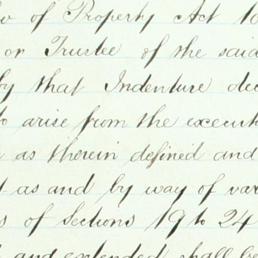 of Property Act
or Trustee of the said
by that Indenture
to arise from the
as therein defined and
as and by way of
of Sections 19 to 24
and extended shall be